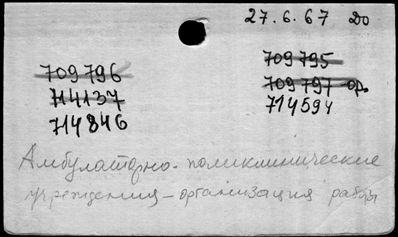 27.6.67 До
709 796
714137
714846
709 795
709 797 ор.
714594
Амбулаторно-поликлинические
учреждения – организация работы